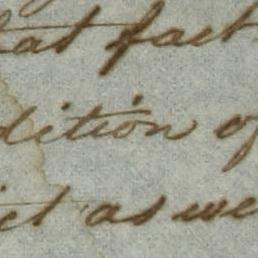 at fact
dition of
ict as we